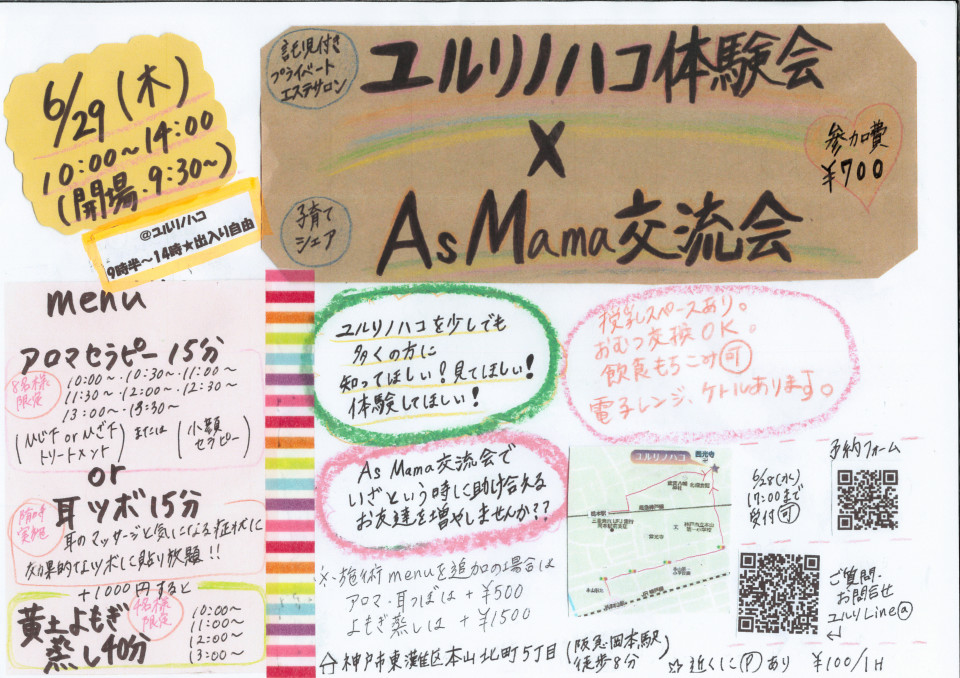 6/29(木)
10:00~14:00
(開場.9:30~)
@ユルリノハコ
9時半~14時★出入り自由
託児付き
プライベート
エステサロン
ユルリノハコ体験会
×
子育て
シェア
AsMama交流会
参加費
¥700
menu
アロマセラピー15分
8名様
限定
10:00~.10:30~.11:00~
11:30~.12:00~.12:30~
13:00~.13:30~
(ひじ下orひざ下
トリートメント)
または
(小顔
セラピー)
or
耳ツボ15分
随時
実施
耳のマッサージと気になる症状に
効果的なツボに貼り放題!!
+1000円すると
黄土よもぎ
蒸し40分
4名様
限定
10:00~
11:00~
12:00~
13:00~
ユルリノハコを少しでも
多くの方に
知ってほしい!見てほしい!
体験してほしい!
授乳スペースあり。
おむつ交換OK。
飲食もちこみ可
電子レンジ、ケトルあります。
As Mama交流会で
いざという時に助け合える
お友達を増やしませんか??
※施術menuを追加の場合は
アロマ・耳つぼは+¥500
よもぎ蒸しは+¥1500
ユルリノハコ
6/28(水)
17:00まで
受付可
予約フォーム
ご質問・
お問合せ
ユルリLine@
神戸市東灘区本山北町5丁目
(阪急岡本駅
徒歩8分)
☆近くにPあり ¥100/1H